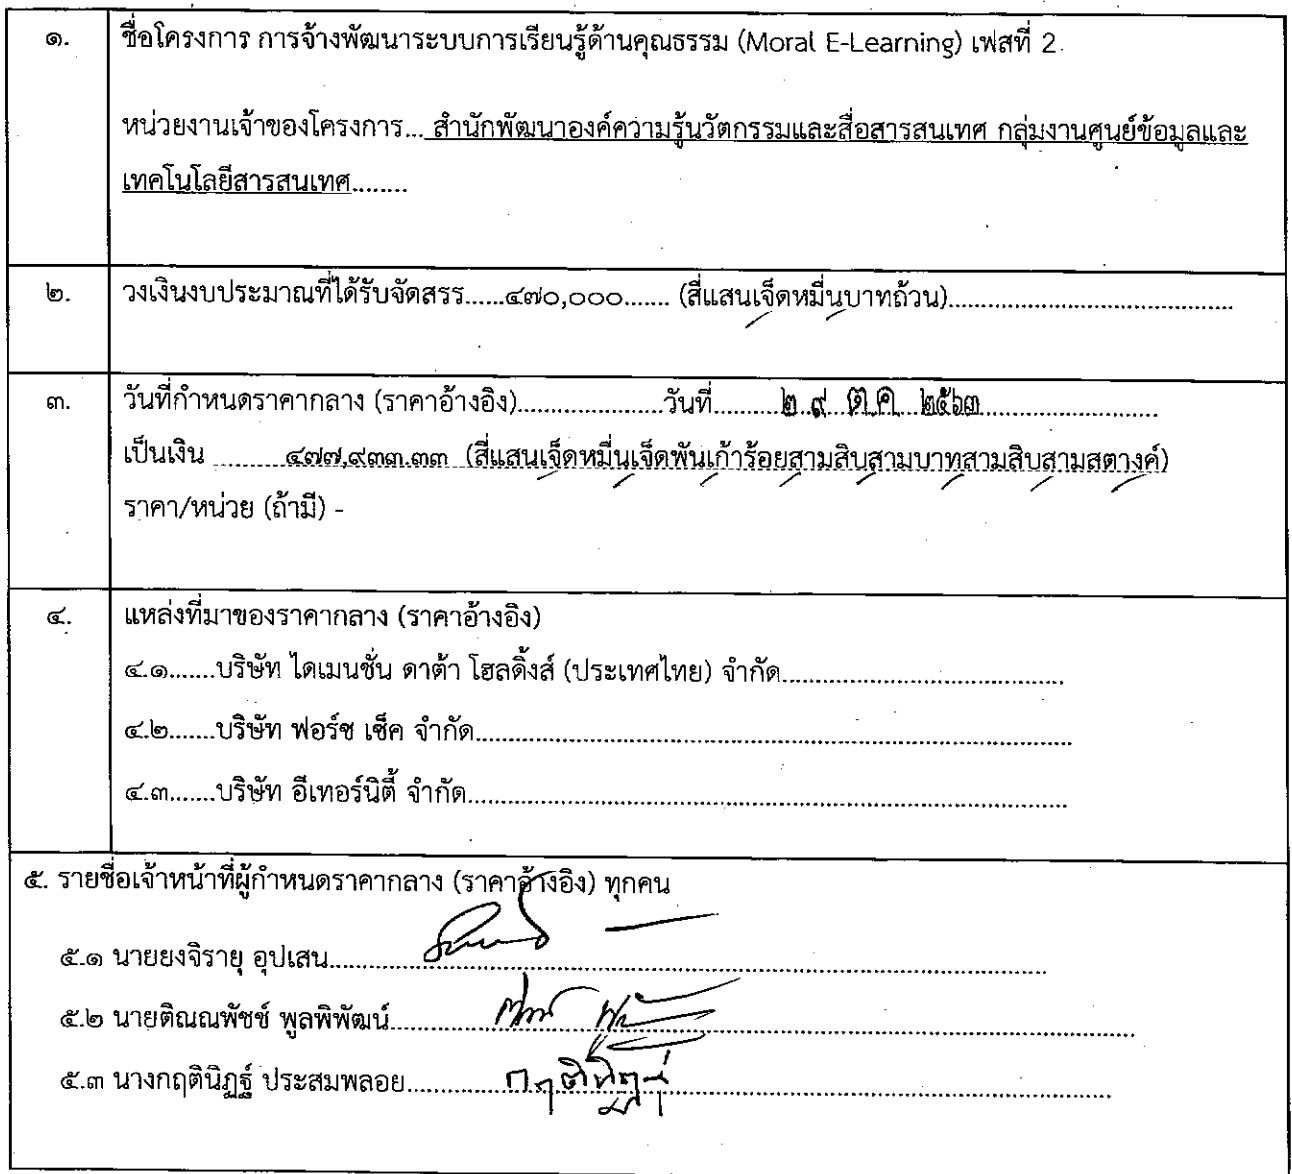 ๑. ชื่อโครงการ การจ้างพัฒนาระบบการเรียนรู้ด้านคุณธรรม (Moral E-Learning) เฟสที่ 2
หน่วยงานเจ้าของโครงการ... สำนักพัฒนาองค์ความรู้นวัตกรรมและสื่อสารสนเทศ กลุ่มงานศูนย์ข้อมูลและ
เทคโนโลยีสารสนเทศ........
๒. วงเงินงบประมาณที่ได้รับจัดสรร......๔๗๐,๐๐๐....... (สี่แสนเจ็ดหมื่นบาทถ้วน)........................................
๓. วันที่กำหนดราคากลาง (ราคาอ้างอิง).....................วันที่.........๒ ๙ ต.ค. ๒๕๖๓.........................
เป็นเงิน ..........๔๗๗,๙๓๓.๓๓ (สี่แสนเจ็ดหมื่นเจ็ดพันเก้าร้อยสามสิบสามบาทสามสิบสามสตางค์)
ราคา/หน่วย (ถ้ามี) -
๔. แหล่งที่มาของราคากลาง (ราคาอ้างอิง)
๔.๑.......บริษัท ไดเมนชั่น ดาต้า โฮลดิ้งส์ (ประเทศไทย) จำกัด........................................
๔.๒.......บริษัท ฟอร์ซ เช็ค จำกัด....................................................................................
๔.๓.......บริษัท อีเทอร์นิตี้ จำกัด.....................................................................................
๕. รายชื่อเจ้าหน้าที่ผู้กำหนดราคากลาง (ราคาอ้างอิง) ทุกคน
๕.๑ นายยงจิรายุ อุปเสน.....................................................................................................
๕.๒ นายติณณพัชช์ พูลพิพัฒน์...........................................................................................
๕.๓ นางกฤตินิฏฐ์ ประสมพลอย............... กฤตินิฏฐ์ ...............................................